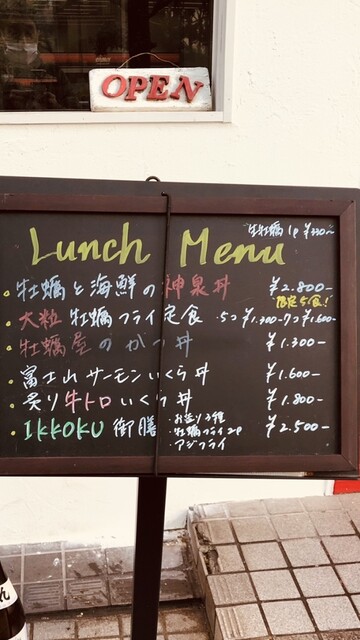 OPEN
Lunch Menu
生牡蠣 1p ¥330-
・牡蠣と海鮮の神泉丼 ¥2.800-
限定5食!
・大粒牡蠣フライ定食 5コ¥1.300- 7コ¥1.600-
・牡蠣屋のかつ丼 ¥1.300-
・富士山サーモンいくら丼 ¥1.600-
・炙り牛トロいくら丼 ¥1.800-
・IKKOKU 御膳 ¥2.500-
・お造り3種
・牡蠣フライ2P
・アジフライ